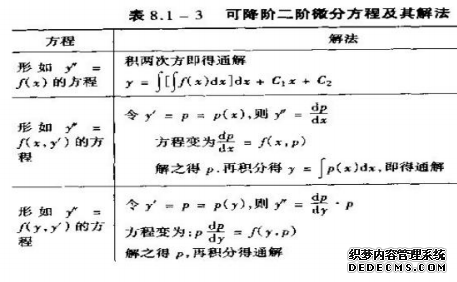 表 8.1-3 可降阶二阶微分方程及其解法
方程 解法
形如 y″ = f(x) 的方程
积两次方即得通解
y = ∫[∫f(x)dx]dx + C₁x + C₂
形如 y″ = f(x,y′) 的方程
令 y′ = p = p(x),则 y″ = dp/dx
方程变为 dp/dx = f(x,p)
解之得 p.再积分得 y = ∫p(x)dx,即得通解
形如 y″ = f(y,y′) 的方程
令 y′ = p = p(y),则 y″ = dp/dy · p
方程变为:p dp/dy = f(y,p)
解之得 p,再积分得通解
织梦内容管理系统
DEDECMS.COM